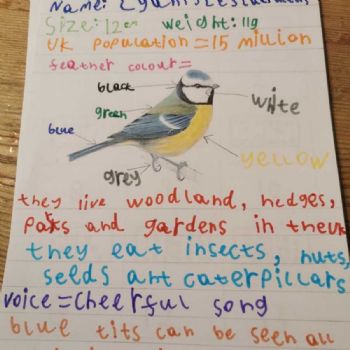 Name: Cyanistes
Size: 12cm weight: 11g
UK population = 15 million
feather colour =
black
white
green
blue
yellow
grey
they live woodland, hedges,
parks and gardens in the uk
they eat insects, nuts,
seeds ant caterpillars
voice = cheerful song
blue tits can be seen all